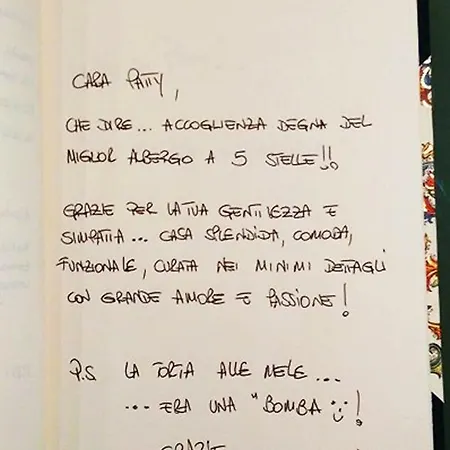 CARA PATTY,
CHE DIRE... ACCOGLIENZA DEGNA DEL
MIGLIOR ALBERGO A 5 STELLE!!
GRAZIE PER LA TUA GENTILEZZA E
SIMPATIA... CASA SPLENDIDA, COMODA,
FUNZIONALE, CURATA NEI MINIMI DETTAGLI
CON GRANDE AMORE E PASSIONE!
P.S. LA TORTA ALLE MELE...
... ERA UNA "BOMBA !
GRAZIE